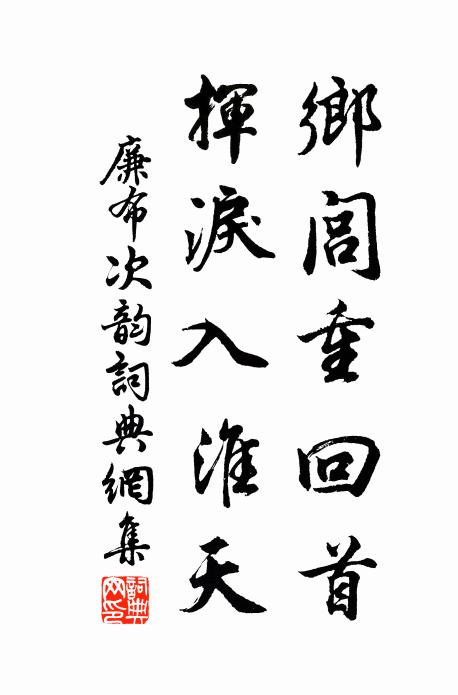 鄉閭重回首
揮淚入淮天
廉布次韵詞典網集
詞典網印